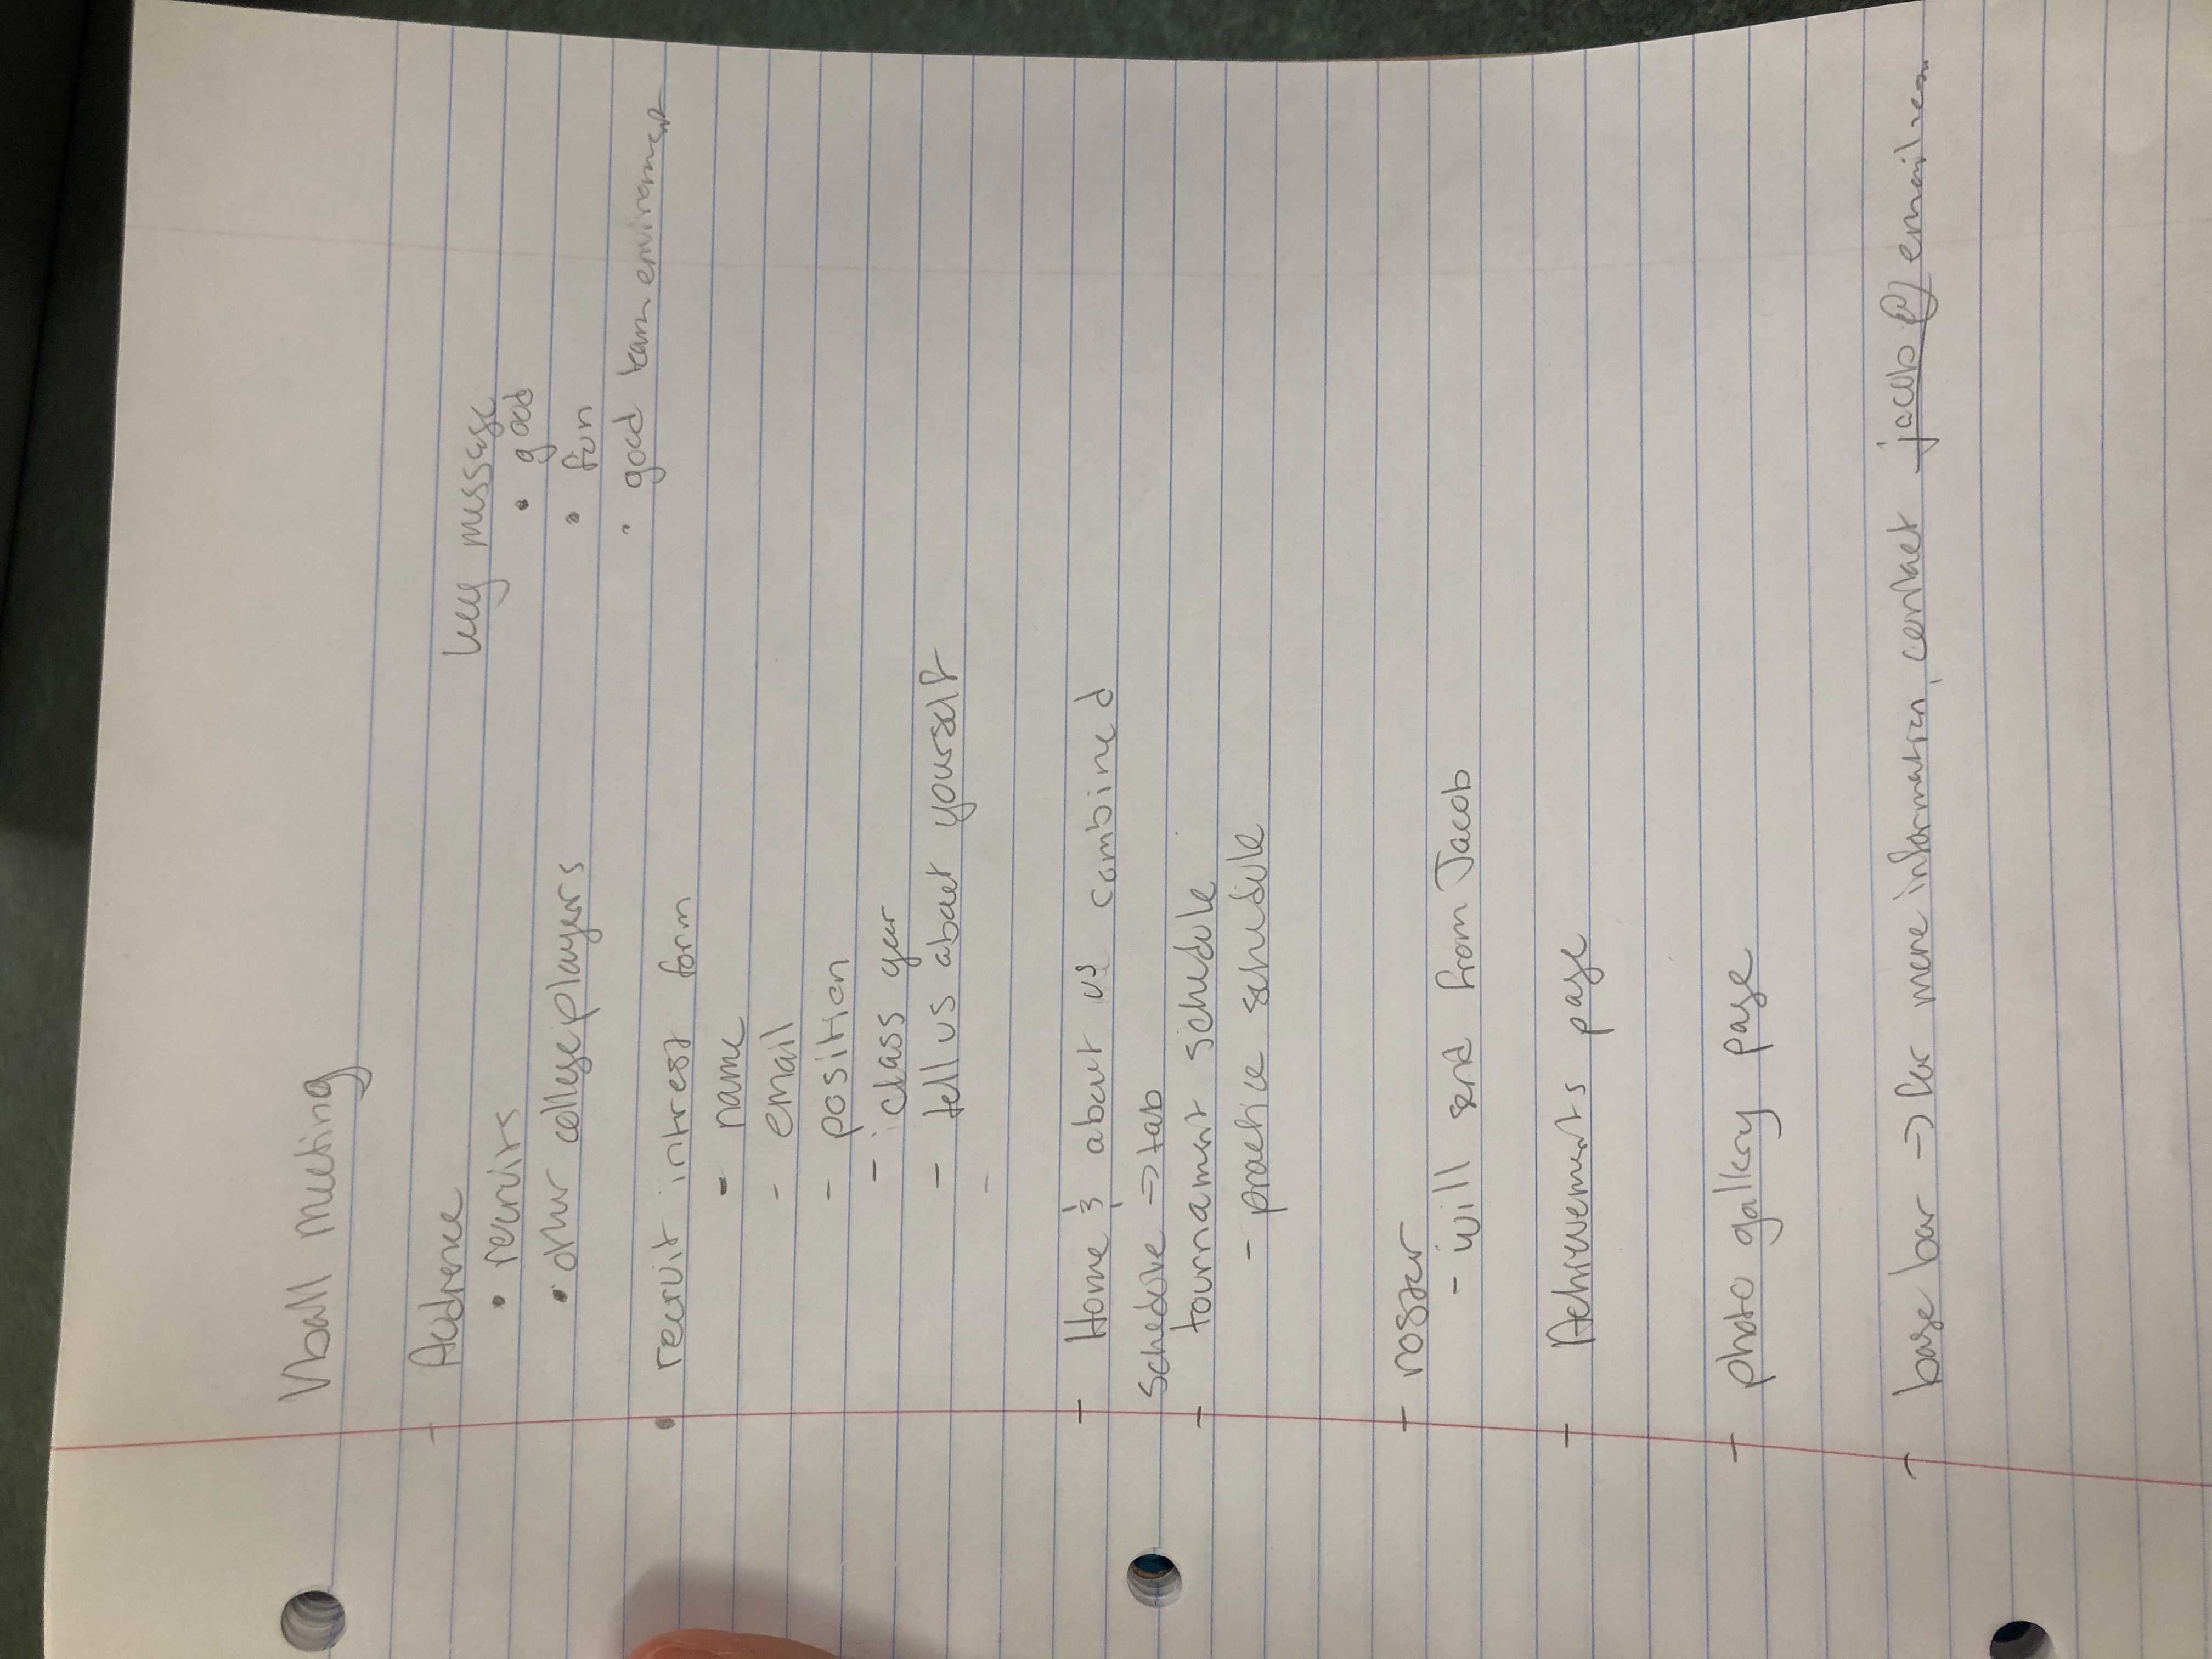 Vball meeting
- Audience
• recruits
• other college players
key message
• good
• fun
• good team enviroment
• recruit intrest form
- name
- email
- position
- class year
- tell us about yourself
-
- Home & about us combined
schedule → tab
- tournament schedule
- practice schedule
- roster
- will send from Jacob
- Achievements page
- photo gallery page
- base bar → for more information, contact jacob@email.com